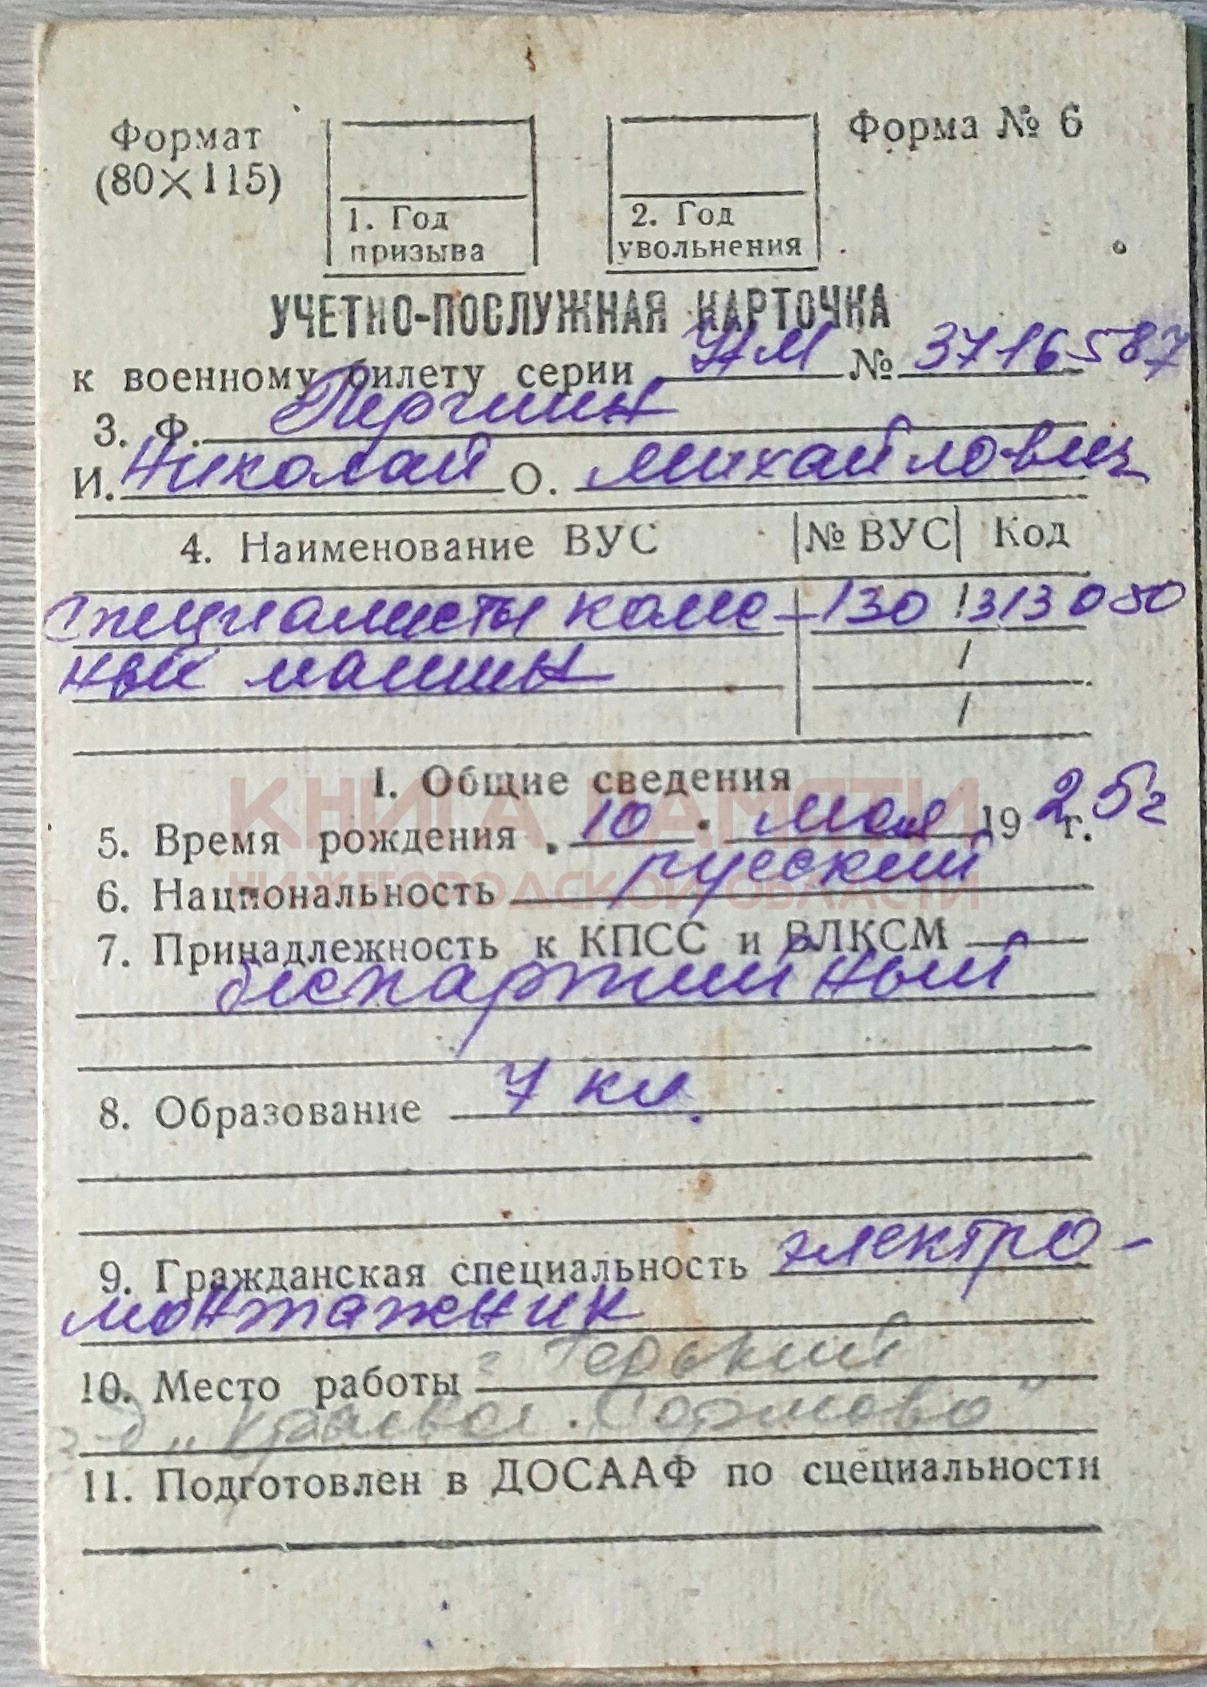 Формат
(80×115)
1. Год
призыва
2. Год
увольнения
Форма № 6
УЧЕТНО-ПОСЛУЖНАЯ КАРТОЧКА
к военному билету серии НМ № 3716587
3. Ф.
И. Николай О. Михайлович
4. Наименование ВУС № ВУС Код
Специалисты 130 313 080
ных машин
КНИГА ПАМЯТИ
НИЖЕГОРОДСКОЙ ОБЛАСТИ
I. Общие сведения
5. Время рождения 10 мая 19 25 г.
6. Национальность русский
7. Принадлежность к КПСС и ВЛКСМ
беспартийный
8. Образование 7 кл.
9. Гражданская специальность электро-
монтажник
10. Место работы г. Горький
з-д „Красное Сормово"
11. Подготовлен в ДОСААФ по специальности